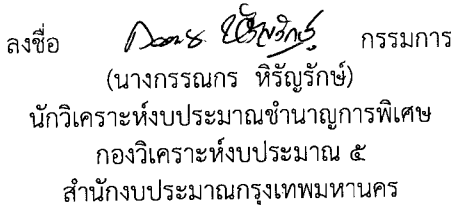 ลงชื่อ กรรมการ
(นางกรรณกร หิรัญรักษ์)
นักวิเคราะห์งบประมาณชำนาญการพิเศษ
กองวิเคราะห์งบประมาณ ๕
สำนักงบประมาณกรุงเทพมหานคร